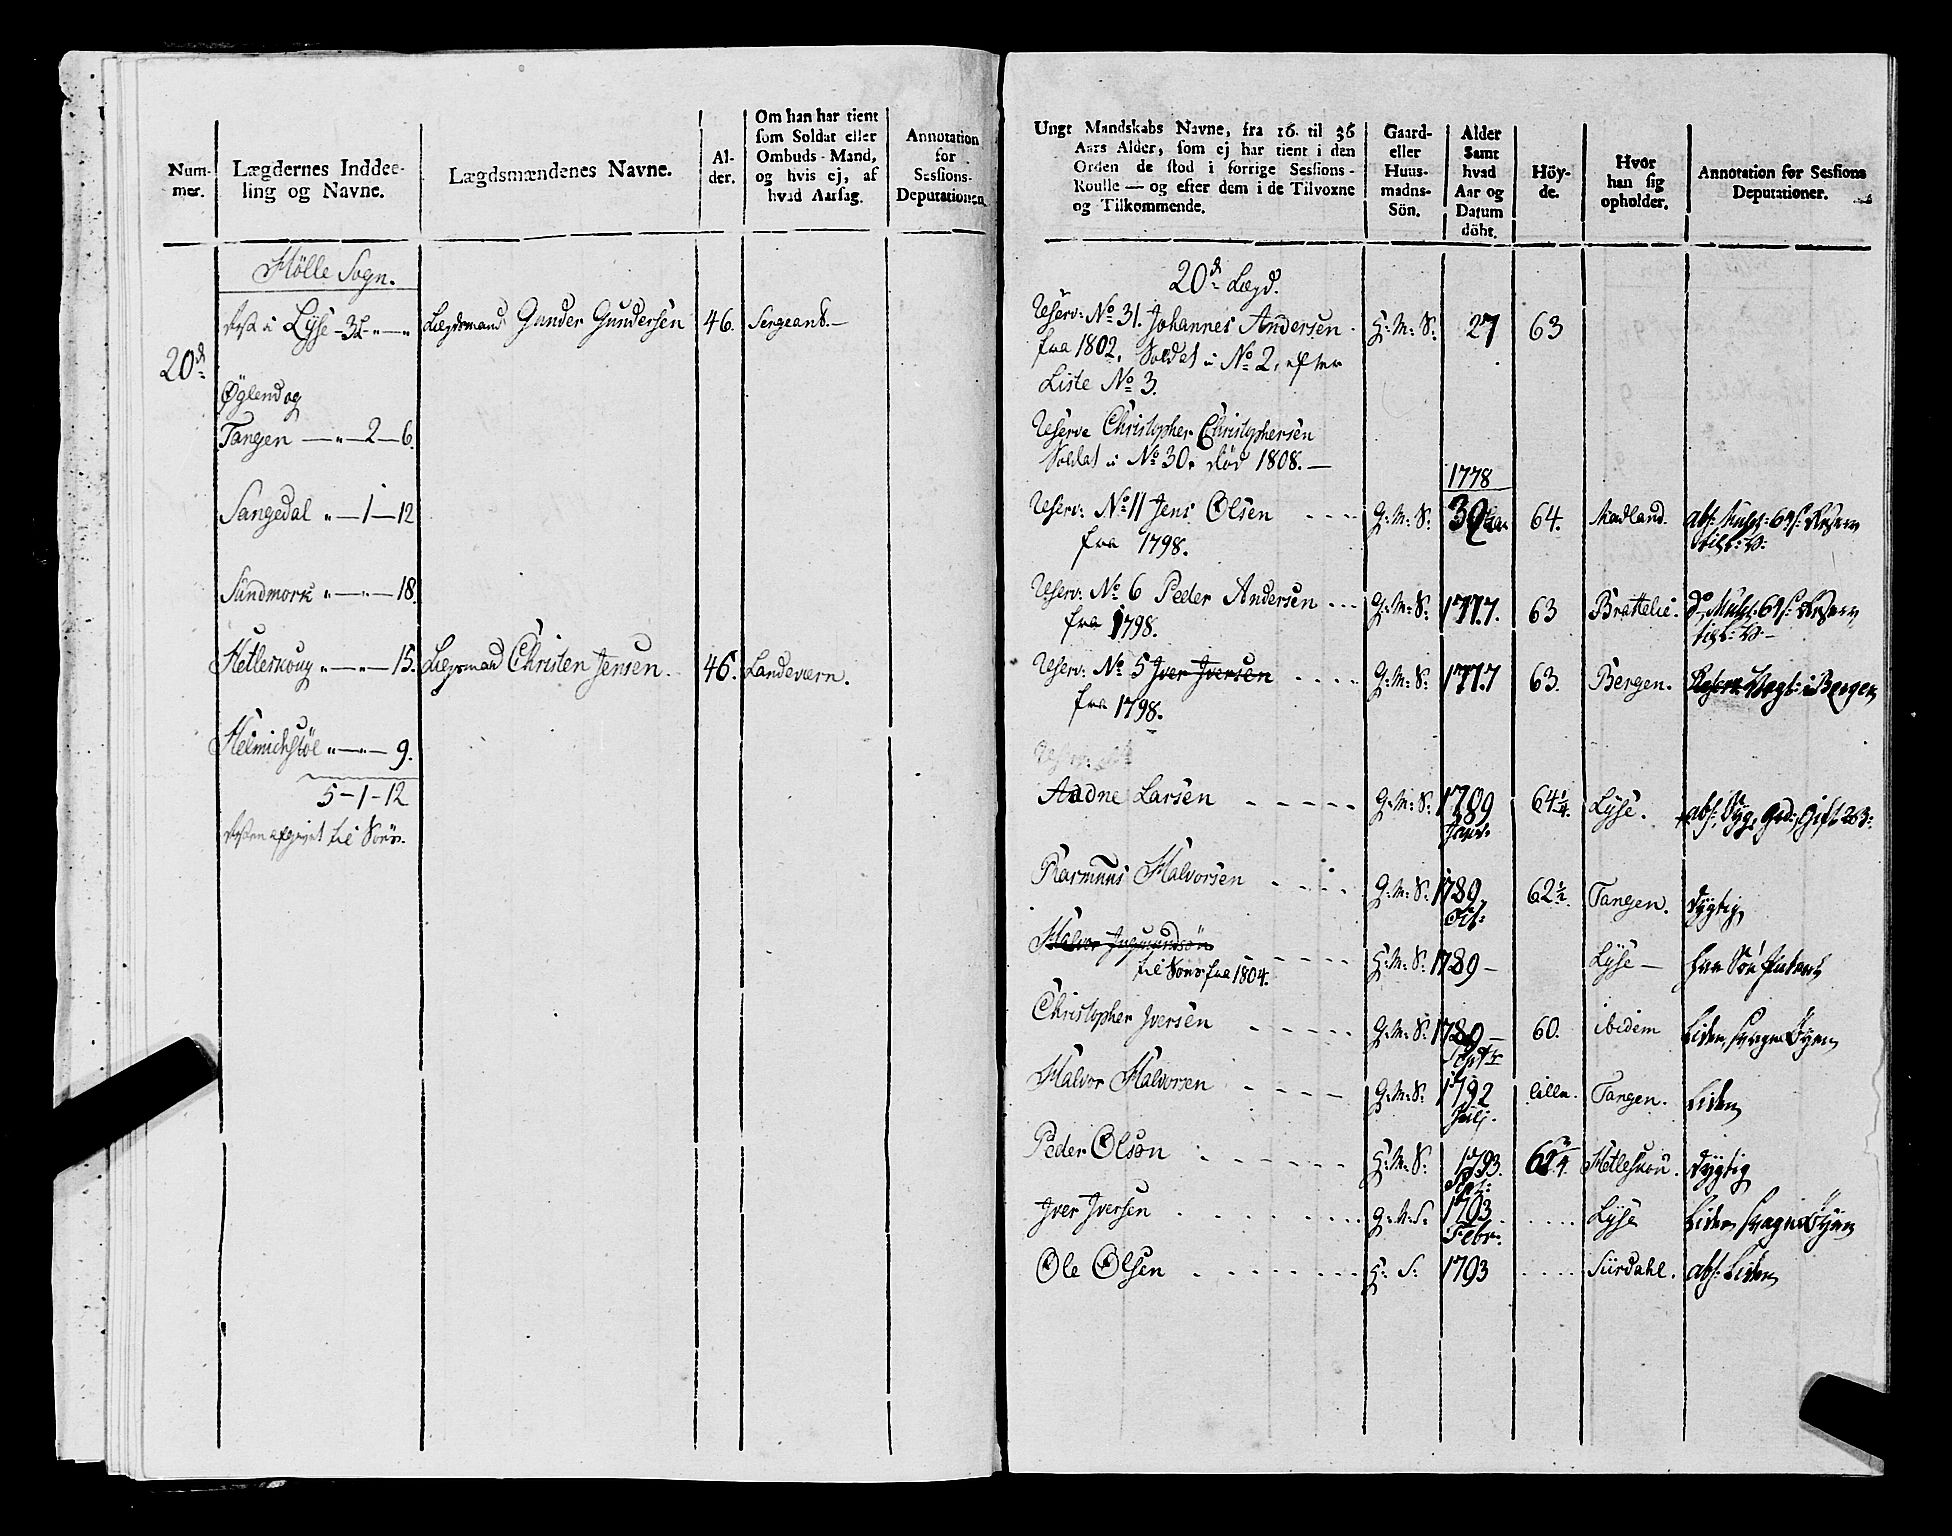 Num-
mer.
Lægdernes Inddee-
ling og Navne.
Lægdsmændenes Navne.
Al-
der.
Om han har tient
som Soldat eller
Ombuds-Mand,
og hvis ej, af
hvad Aarsag.
Annotation
for
Sessions-
Deputationen.
Hölle Sogn.
20de
Lyse
Lægdsmand Gunder Gundersen 46. Sergeant.—
Øglend og
Tangen — „ — 2 — 6.
Sangedal „ — 1 — 12
Sundmork „ — „ — 18.
Hetleskoug „ — „ — 15. Lægdsmand Christen Jensen. 46. Landeværn.
Helmichstöl „ — „ — 9.
5 — 1 — 12
til
Ungt Mandskabs Navne, fra 16. til 36
Aars Alder, som ej har tient i den
Orden de stod i forrige Sessions-
Roulle — og efter dem i de Tilvoxne
og Tilkommende.
Gaard-
eller
Huus-
mands-
Sön.
Alder
Samt
hvad
Aar og
Datum
döbt.
Höy-
de.
Hvor
han sig
opholder.
Annotation for Sessions
Deputationer.
20de Lægd.
Reserv: No 31. Johannes Andersen H: M: S: 27 63
fra 1802, Soldat i No 2, efter
Liste No 3.
Reserve Christopher Christophersen
Soldat i No 30. död 1808. —
1778
Reserv: No 11 Jens Olsen G: M: S: 30 64. Madland.
fra 1798.
Reserv: No 6 Peder Andersen G: M: S: 1777. 63 Brattelie.
fra 1798.
Reserv: No 5 Iver Iversen G: M: S: 1777 63. Bergen.
fra 1798.
Aadne Larsen G: M: S: 1789 64 1/4 Lyse.
Rasmus Halvorsen G: M: S: 1789. 62 1/2. Tangen. dygtig
Halvor H: M: S: 1789 — Lyse —
til fra 1804.
Christopher Iversen G: M: S: 1789 — 60. ibidem Liden, svage Öyen
Septr
Halvor Halvorsen G: M: S: 1792 lille. Tangen. Liden
Julj.
Peder Olsen H: M: S: 1793. Hetleskou. dygtig
Sept:
Iver Iversen G: M: S: 1793 Lyse Liden svage Öyen
Febr:
Ole Olsen H: S: 1793 Siirdahl. abs: Liden